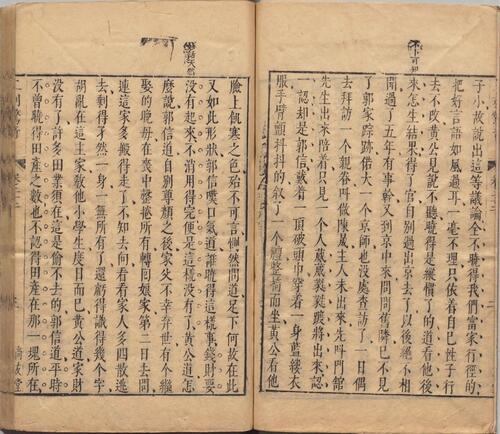 子小故說出這等議論全不曉得我們富家行徑的
把好言語如風過耳一毫不理只依着自己性子行
去不改黃公見說不聽曉得是縱慣了的道看他後
來怎生結果得了官自別過出京去了以後絕不相
聞過了五年有事幹又到京中來問問舊隣已不見
了郭家踪跡偌大一個京師也沒處查訪了一日偶
去拜訪一個親眷叫做陳晟主人未出來先叫門館
先生出來陪着只見一個人葳葳踱將出來認
一認却是郭信戴着一頂破頭巾穿着一身藍縷衣
服手臂顫抖抖的叙了一個禮整椅而坐黃公看他
臉上飢寒之色殆不可言惻然問道足下何故在此
又如此形狀郭信嘆口氣道誰曉得這樣事錢財要
沒有起來不消用得完便是這樣沒有了黃公道怎
麼說郭信道自別尊顏之後家父不幸棄世有個繼
娶的晚母在喪中罄捲所有轉回娘家第二日去問
連這家多搬得走了不知去向看看家人多四散逃
去剩得孑然一身一無所有了還虧得識得幾个字
胡亂在這主家教他小學生度日而已黃公道家財
沒有了許多田業須在這是偷不去的郭信道平時
不曾曉得田產之數也不認得田產在那一塊所在
尚友堂